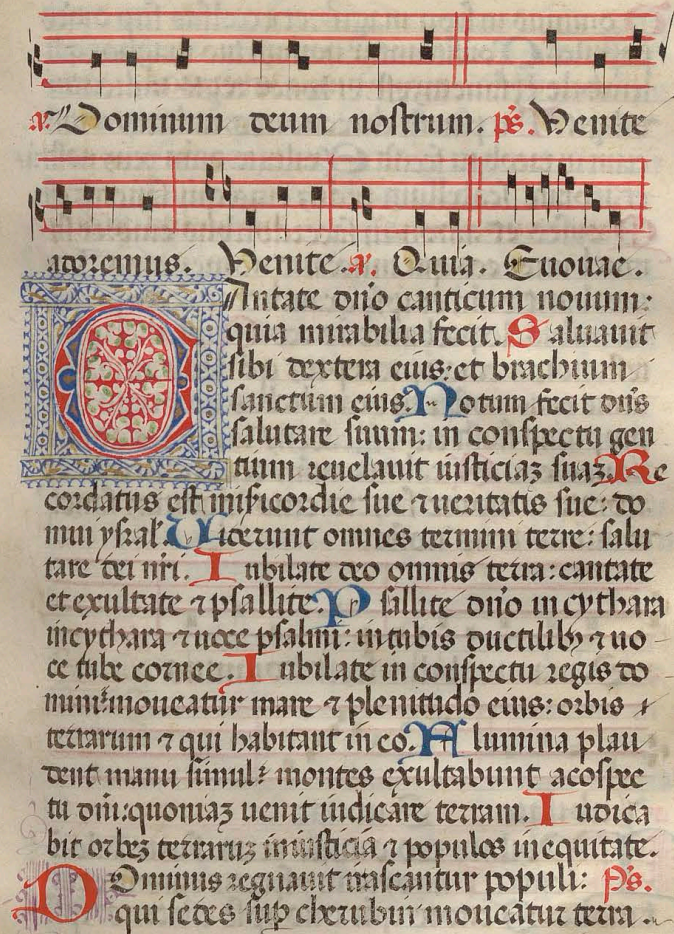 a. Dominum deum nostrum. ps. Venite
adoremus. Venite. a. Quia. Euouae.
CAntate dño canticum nouum:
quia mirabilia fecit. Saluauit
sibi dextera eius: et brachium
sanctum eius. Notum fecit dñs
salutare suum: in conspectu gen
tium reuelauit iusticiaȝ suaȝ. Re
cordatus est mi͂sicordie sue ⁊ ueritatis sue: do
mui ysrał. Uiderunt omnes termini terre: salu
tare dei nr̃i. Iubilate deo omnis terra: cantate
et exultate ⁊ psallite. Psallite dño in cythara
in cythara ⁊ uoce psalmi: in tubis ductilibȝ ⁊ uo
ce tube cornee. Iubilate in conspectu regis do
mini: moueatur mare ⁊ plenitudo eius: orbis
terrarum ⁊ qui habitant in eo. Flumina plau
dent manu simul: montes exultabunt a cõspec
tu dñi: quoniaȝ uenit iudicare terram. Iudica
bit orbeȝ terraruȝ in iusticia ⁊ populos in equitate.
DOminus regnauit irascantur populi: Ps.
qui sedes sup cherubin moueatur terra.